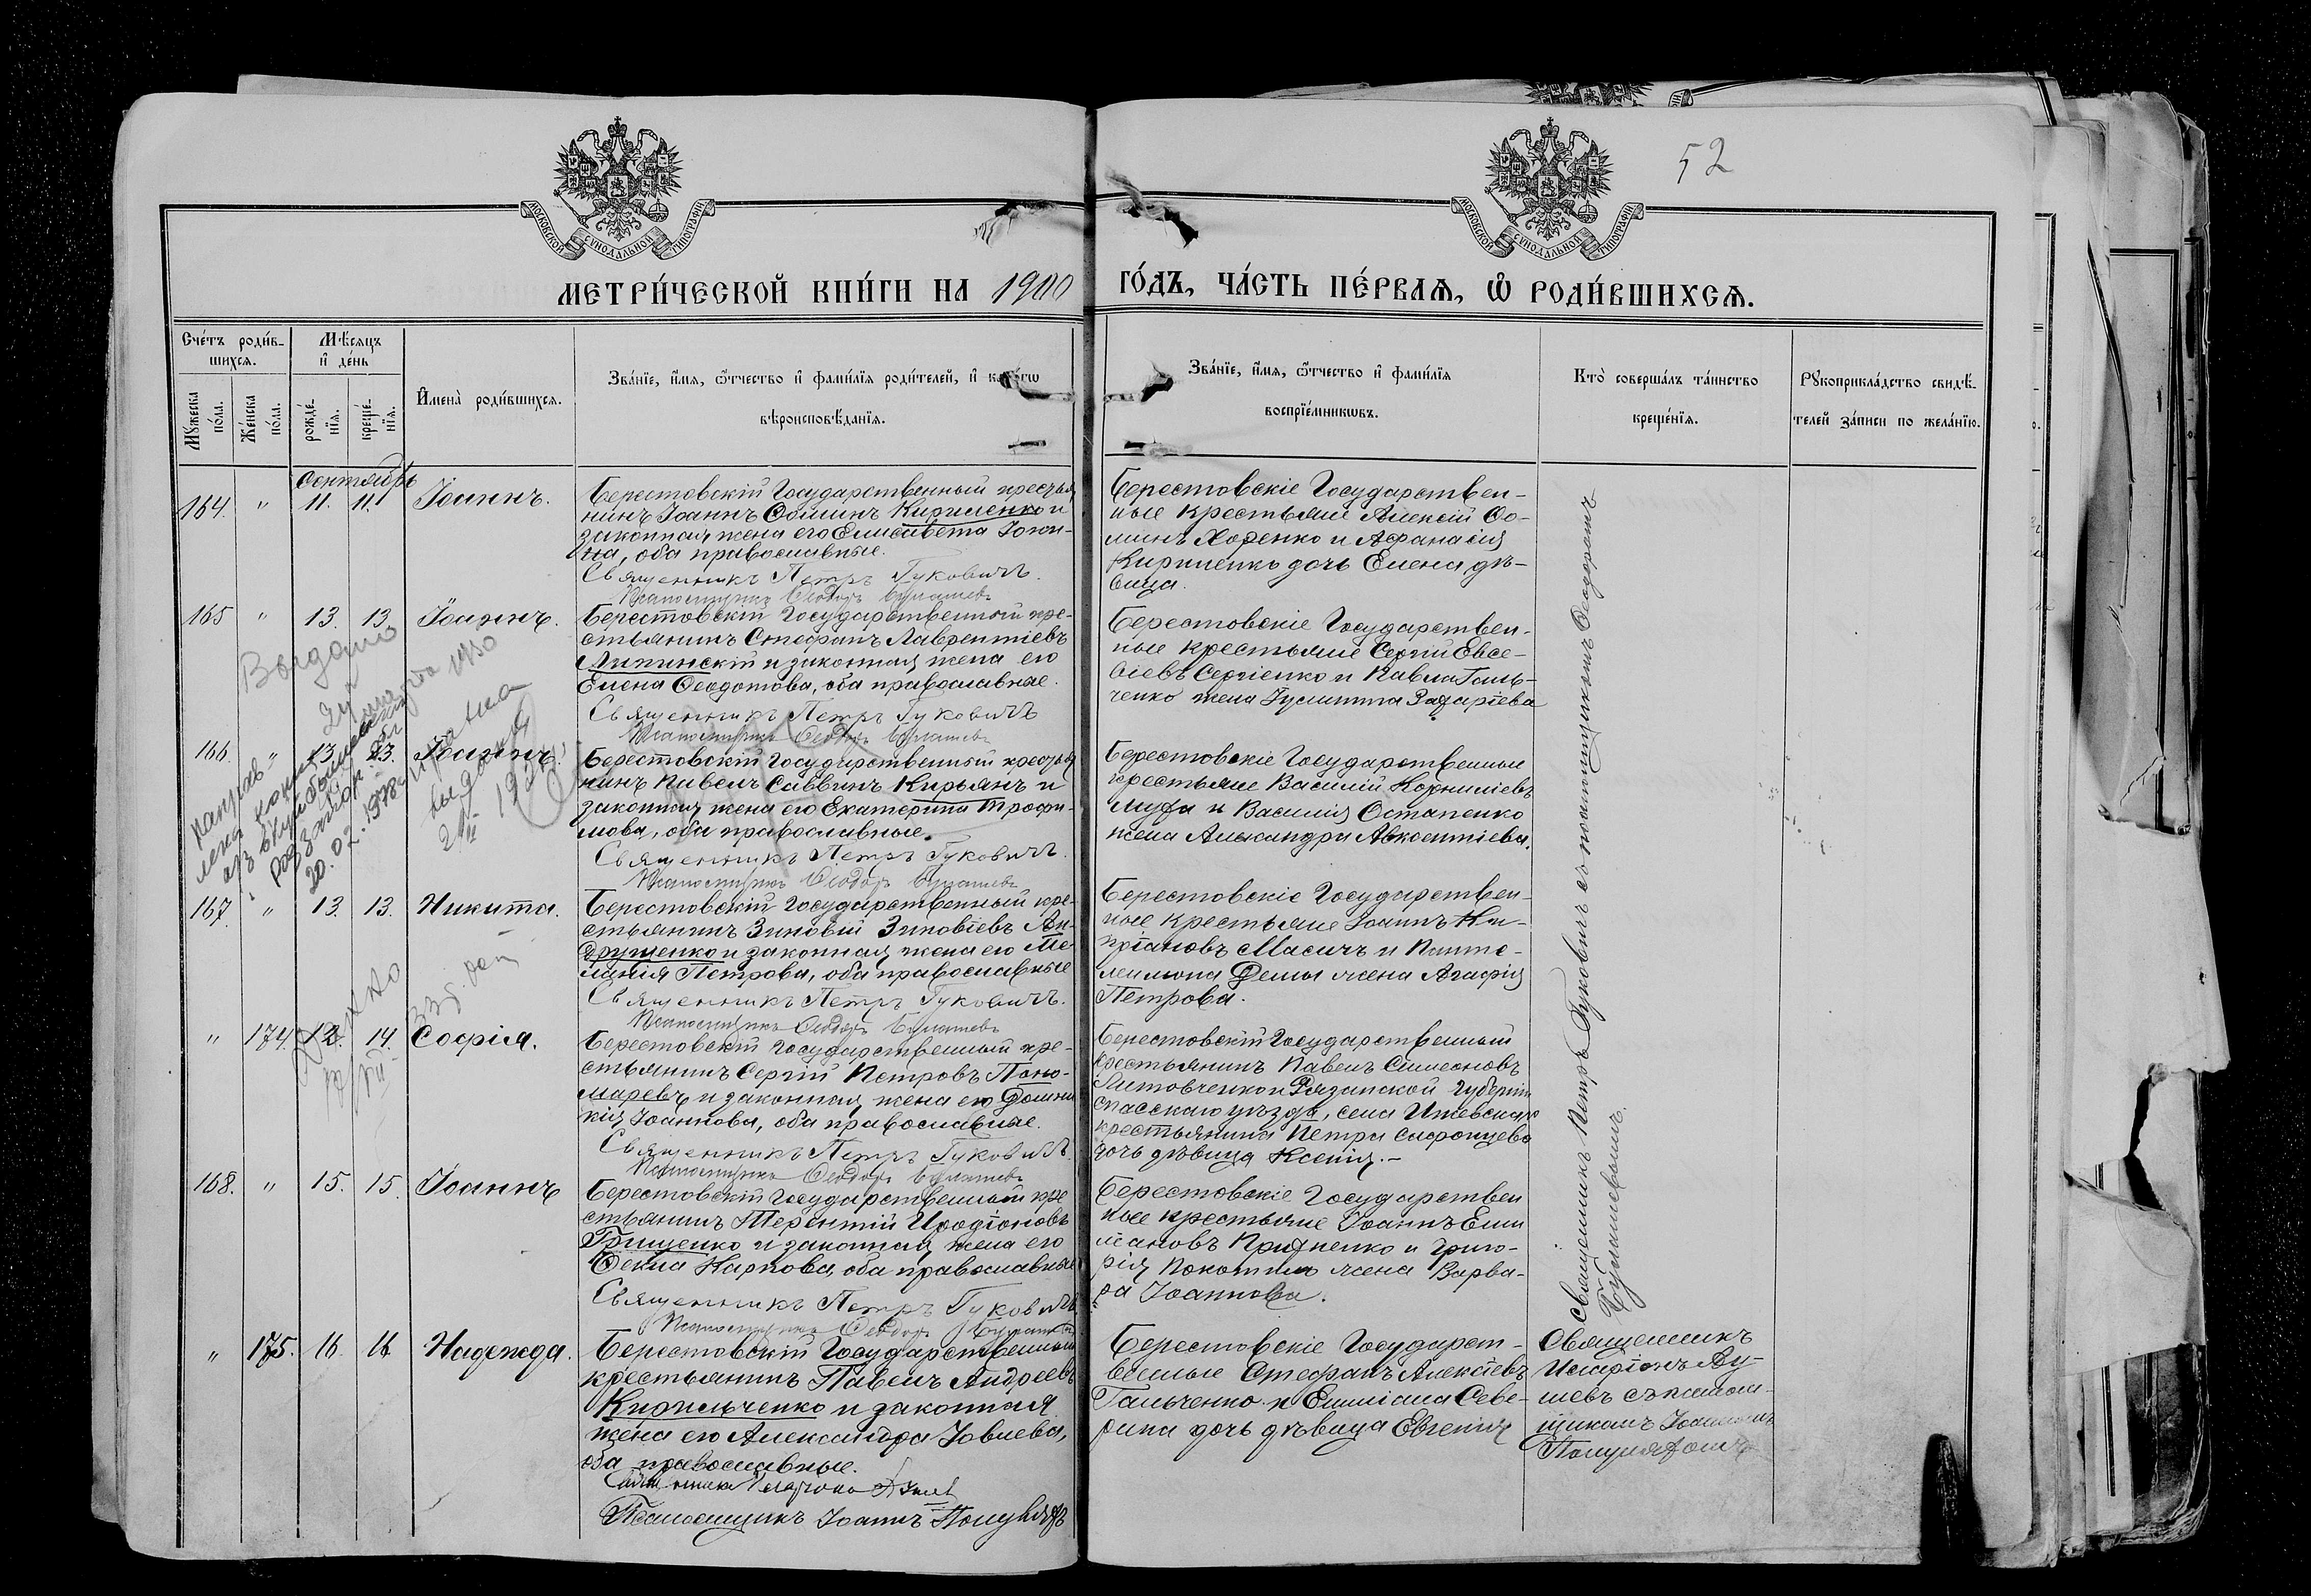 52
МОСКОВСКОЙ СѴНОДАЛЬНОЙ ТИПОГРАФІИ
МОСКОВСКОЙ СѴНОДАЛЬНОЙ ТИПОГРАФІИ
МЕТРИ́ЧЕСКОЙ КНИ́ГИ НА 1900 ГО́ДЪ, ЧА́СТЬ ПЕ́РВАѦ, Ѡ҆ РОДИ́ВШИХСѦ.
Сче́тъ роди́в-
шихсѧ.
Мꙋ́жеска
по́ла.
Же́нска
по́ла.
Мѣ́сяцъ
и҆ де́нь
рожде́-
нїѧ.
креще́-
нїѧ.
И҆мена̀ роди́вшихсѧ.
Зва́нїе, и҆́мѧ, ѻ҆́тчество и҆ фами́лїѧ роди́телей, и҆
вѣроисповѣ́данїѧ.
Зва́нїе, и҆́мѧ, ѻ҆́тчество и҆ фами́лїѧ
воспрїе́мникѡвъ.
Кто̀ соверша́лъ та́инство
креще́нїѧ.
Рꙋкоприкла́дство свидѣ́-
телей за́писи по жела́нїю.
Сентябрь
164. " 11. 11. Іоаннъ.
Берестовскій Государственный крестья
нинъ Іоаннъ Ѳоминъ Кириленко и
законная жена его Елисавета
оба православные.
Священникъ Петръ Гуковичъ.
Псаломщикъ Ѳеодоръ
Берестовскіе Государствен-
ные крестьяне Алексій Ѳо-
минъ Хоренко и Аѳанасія
Кириленко дочь Елена дѣ-
вица.
165 " 13. 13. Іоаннъ.
Берестовскій Государственный кре-
стьянинъ Стефанъ Лаврентіевъ
Липинскій и законная жена его
Елена Ѳеодотова, оба православные.
Священникъ Петръ Гуковичъ
Псаломщикъ Ѳеодоръ
Берестовскіе Государствен-
ные крестьяне Сергій Евсе-
віевъ Сергіенко и Павла Галь-
ченко жена Іулитта Захаріева
166. " 13. 13. Іоаннъ.
Берестовскій Государственный крестья
нинъ Павелъ Саввинъ Кирьянъ и
законная жена его Екатерина Трофи-
мова, оба православные.
Священникъ Петръ Гуковичъ.
Псаломщикъ Ѳеодоръ
Берестовскіе Государственные
крестьяне Василій Корниліевъ
и Василія Остапенко
жена Александра Авксентіева.
20.02.1978
167. " 13. 13. Никита.
Берестовскій Государственный кре-
стьянинъ Зиновій Зиновіевъ Ан-
друщенко и законная жена его Ме-
ланія Петрова, оба православные
Священникъ Петръ Гуковичъ.
Псаломщикъ Ѳеодоръ
Берестовскіе Государствен-
ные крестьяне Іоаннъ Ки-
пріановъ Масичъ и Панте-
леимона Демы жена Агафія
Петрова.
" 174. 12. 14. Софія.
Берестовскій Государственный кре-
стьянинъ Сергій Петровъ Поно-
маревъ и законная жена его Домни
кія Іоаннова, оба православные.
Священникъ Петръ Гуковичъ.
Псаломщикъ Ѳеодоръ
Берестовскій Государственный
крестьянинъ Павелъ Симеоновъ
Литовченко и Рязанской губерніи
Спасскаго уѣзда, села Ижевскаго
крестьянина Петра Сафонцева
дочь дѣвица Ксенія.-
168. " 15. 15. Іоаннъ
Берестовскій Государственный кре
стьянинъ Терентій Иродіоновъ
Грищенко и законная жена его
Ѳекла Карпова, оба православные
Священникъ Петръ Гуковичъ.
Псаломщикъ Ѳеодоръ
Берестовскіе Государствен
ные крестьяне Іоаннъ Еми
ліановъ и Григо-
рія Покотило жена Варва-
ра Іоаннова.
Священникъ Петръ Гуковичъ съ псаломщикомъ Ѳеодоромъ
" 175. 16. 16 Надежда.
Берестовскій Государственный
крестьянинъ Павелъ Андреевъ
Кирильченко и законная
жена его Александра Іовлева,
оба православные.
Псаломщикъ Іоаннъ
Берестовскіе Государст-
венные Стефанъ Алексіевъ
Гальченко и Емиліана Севе-
рина дочь дѣвица Евгенія
Священникъ
Иларіонъ Ду-
шевъ съ псалом-
щикомъ Іоанномъ